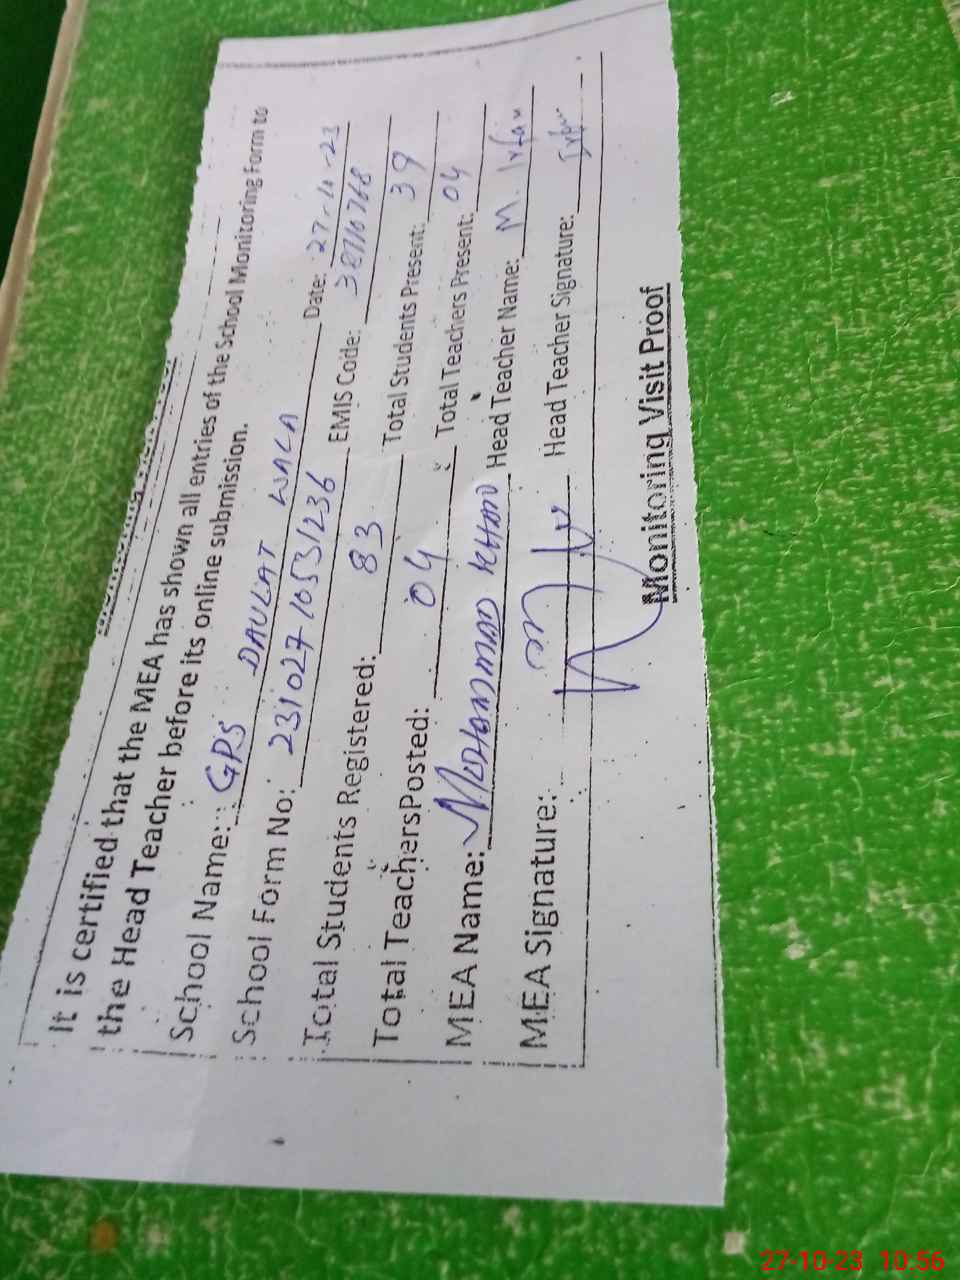 It is certified that the MEA has shown all entries of the School Monitoring Form to
the Head Teacher before its online submission.
School Name: GPS DAULAT WALA Date: 27-10-23
School Form No: 231027-10531236 EMIS Code: 38710768
Total Students Registered: 83 Total Students Present: 39
Total TeachersPosted: 04 Total Teachers Present: 04
MEA Name: MOHAMMAD KHAN Head Teacher Name: M. Irfan
MEA Signature: Head Teacher Signature: Irfan
Monitoring Visit Proof
27-10-23 10:56